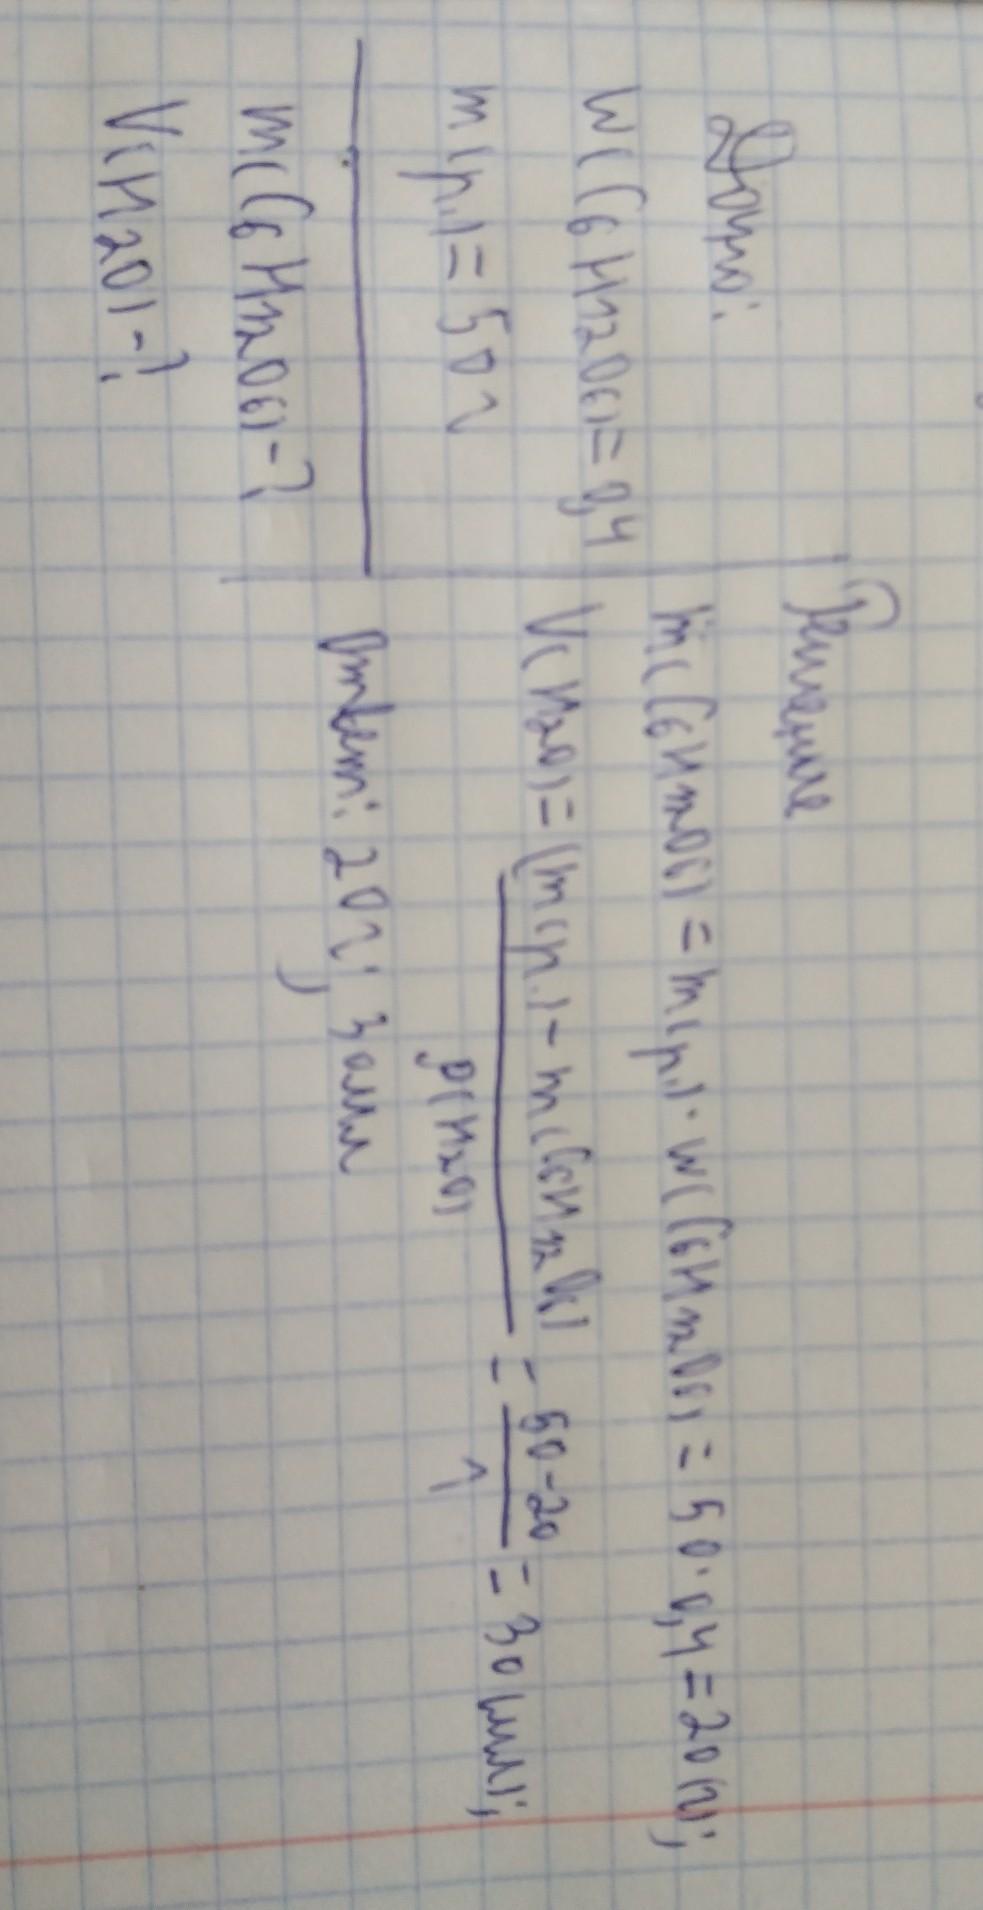 Дано:
w(C6H12O6) = 0,4
m(р.) = 50г
m(C6H12O6) - ?
V(H2O) - ?
Решение
m(C6H12O6) = m(р.) · w(C6H12O6) = 50 · 0,4 = 20(г);
V(H2O) = (m(р.) - m(C6H12O6) = 50-20 = 30(мл);
ρ(H2O) 1
Ответ: 20г; 30мл